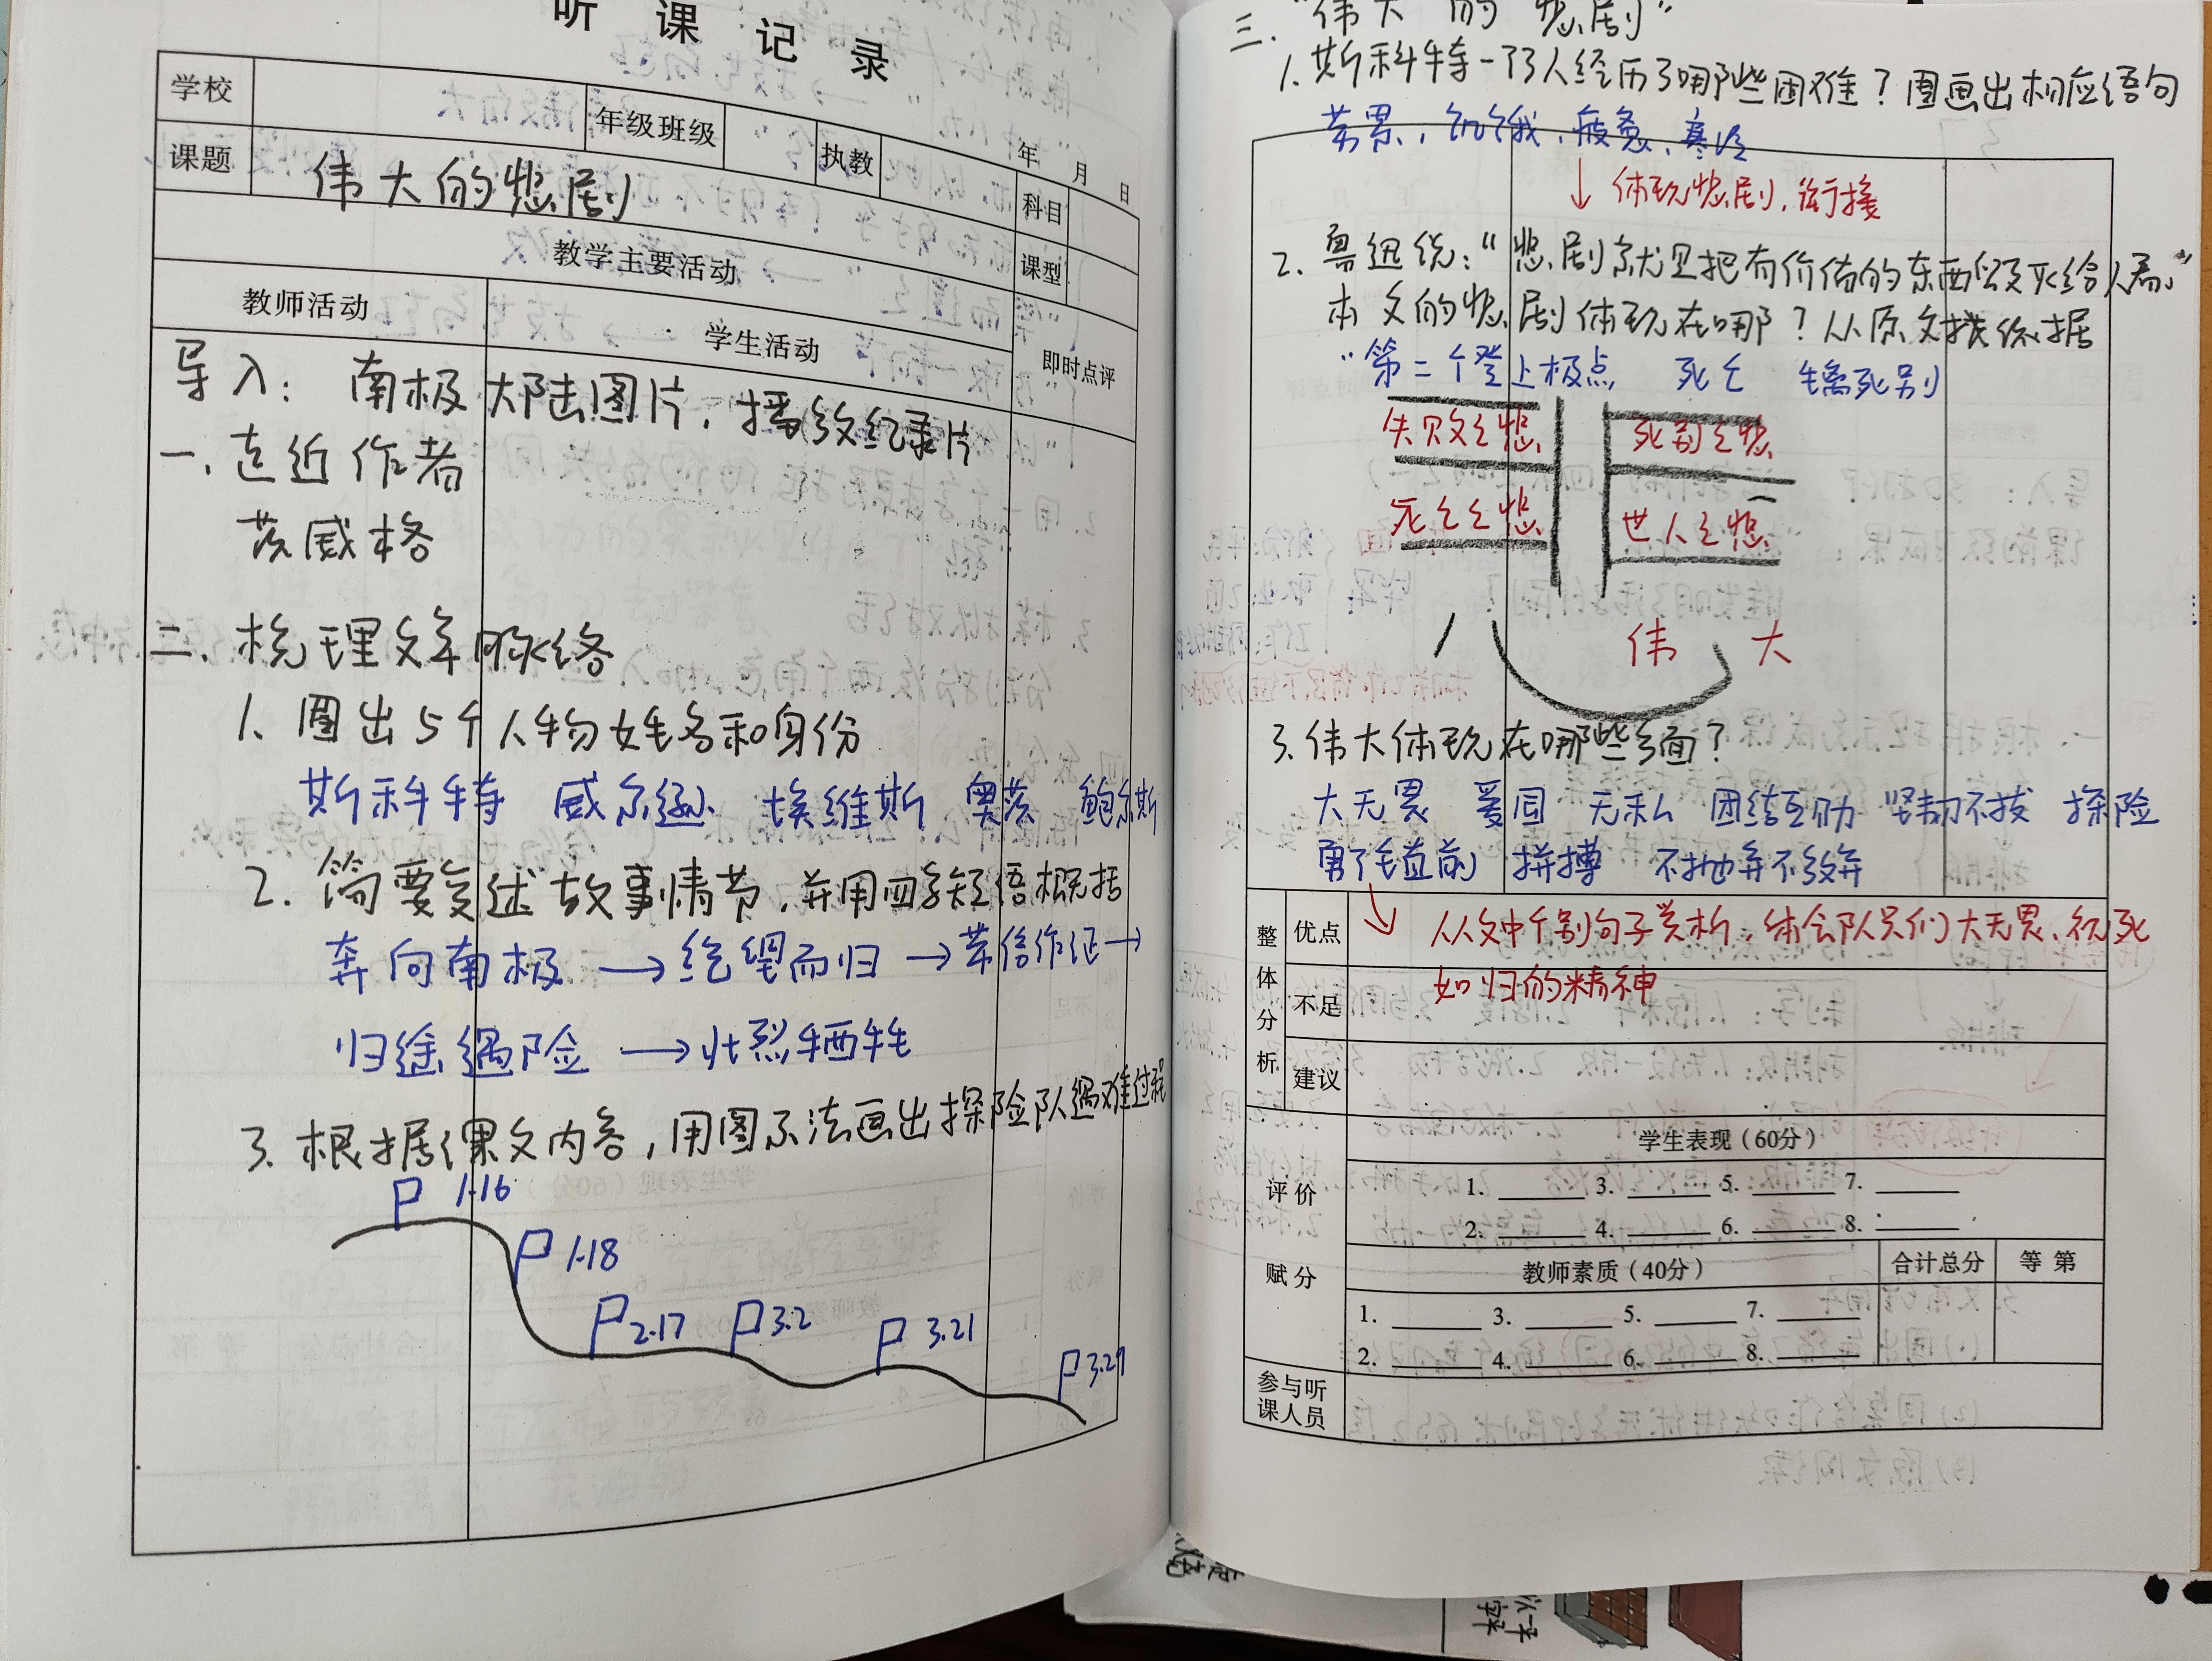 听课记录
学校
年级班级
执教
年 月 日
课题
伟大的悲剧
科目
教学主要活动
课型
教师活动
学生活动
即时点评
导入：南极大陆图片，播放纪录片
一、走近作者
茨威格
二、梳理文章脉络
1. 圈出5个人物姓名和身份
斯科特 威尔逊 埃维斯 奥茨 鲍尔斯
2. 简要复述故事情节，并用四字短语概括
奔向南极→绝望而归→带信作证→
归途遇险→壮烈牺牲
3. 根据课文内容，用图示法画出探险队遇难过程
1.16
1.18
2.17
3.2
3.21
3.29
三、“伟大的悲剧”
1. 斯科特一行人经历了哪些困难？圈画出相应语句
劳累，饥饿，疲惫，寒冷
↓ 体现悲剧，衔接
2. 鲁迅说：“悲剧就是把有价值的东西毁灭给人看”
本文的悲剧体现在哪？从原文找依据
“第二个登上极点 死亡 生离死别
失败之悲 死别之悲
死亡之悲 世人之悲
伟大
3. 伟大体现在哪些方面？
大无畏 爱国 无私 团结互助 坚韧不拔 探险
勇往直前 拼搏 不抛弃不放弃
整体分析
优点
从文中个别句子赏析，体会队员们大无畏、视死
不足
如归的精神
建议
评价赋分
学生表现（60分）
1. 3. 5. 7.
2. 4. 6. 8.
教师素质（40分）
合计总分
等第
1. 3. 5. 7.
2. 4. 6. 8.
参与听
课人员